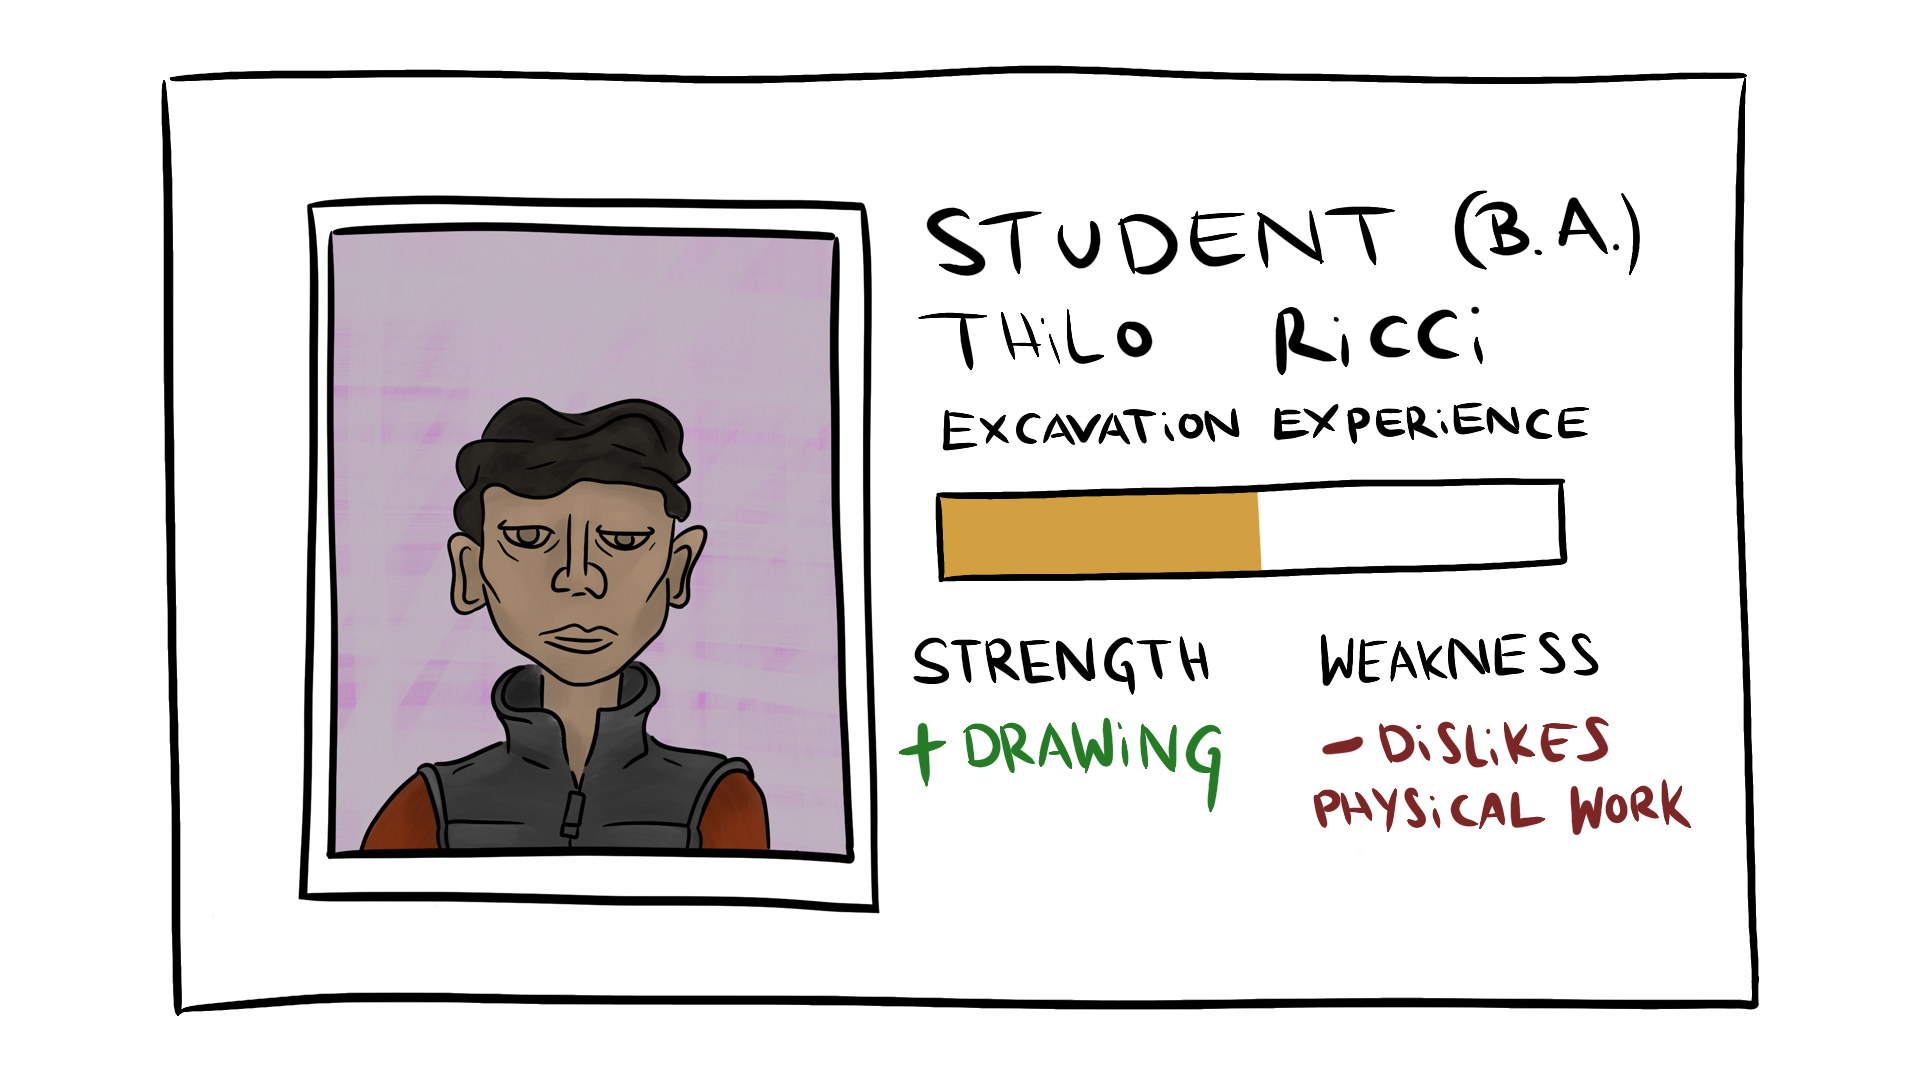 STUDENT (B.A.)
THiLO RiCCi
EXCAVATiON EXPERiENCE
STRENGTH WEAKNESS
+ DRAWiNG - DiSLiKES
PHYSiCAL WORK